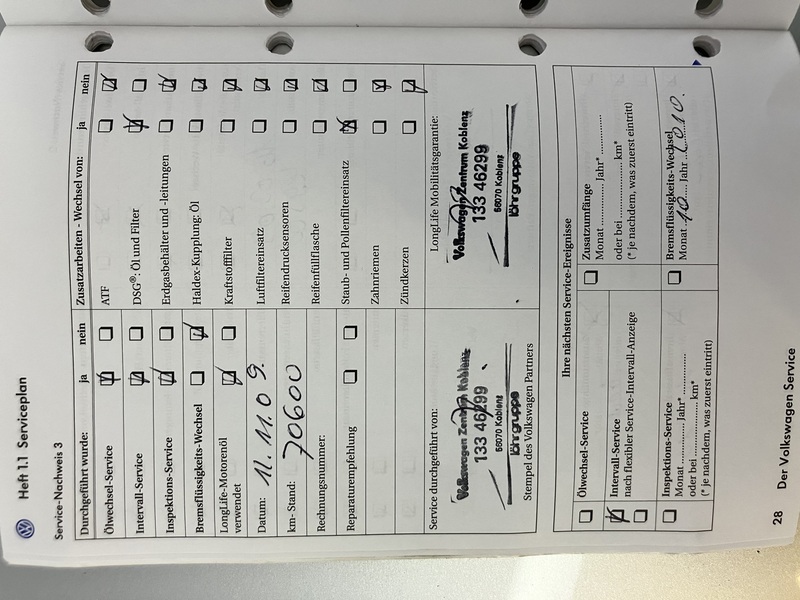 Heft 1.1 Serviceplan
Service-Nachweis 3
Durchgeführt wurde: ja nein
Ölwechsel-Service
Intervall-Service
Inspektions-Service
Bremsflüssigkeits-Wechsel
LongLife-Motorenöl
verwendet
Datum: 11.11.09.
km- Stand: 70600
Rechnungsnummer:
Reparaturempfehlung
Zusatzarbeiten - Wechsel von: ja nein
ATF
DSG®: Öl und Filter
Erdgasbehälter und -leitungen
Haldex-Kupplung: Öl
Kraftstofffilter
Luftfiltereinsatz
Reifendrucksensoren
Reifenfüllflasche
Staub- und Pollenfiltereinsatz
Zahnriemen
Zündkerzen
Service durchgeführt von:
Volkswagen Zentrum Koblenz
133 46299
56070 Koblenz
löhrgruppe
Stempel des Volkswagen Partners
LongLife Mobilitätsgarantie:
Volkswagen Zentrum Koblenz
133 46299
56070 Koblenz
löhrgruppe
Ihre nächsten Service-Ereignisse
Ölwechsel-Service
Intervall-Service
nach flexibler Service-Intervall-Anzeige
Inspektions-Service
Monat .............. Jahr* ..............
oder bei .................. km*
(* je nachdem, was zuerst eintritt)
Zusatzumfänge
Monat .............. Jahr* ..............
oder bei .................. km*
(* je nachdem, was zuerst eintritt)
Bremsflüssigkeits-Wechsel
Monat 10 Jahr 2010.
28 Der Volkswagen Service